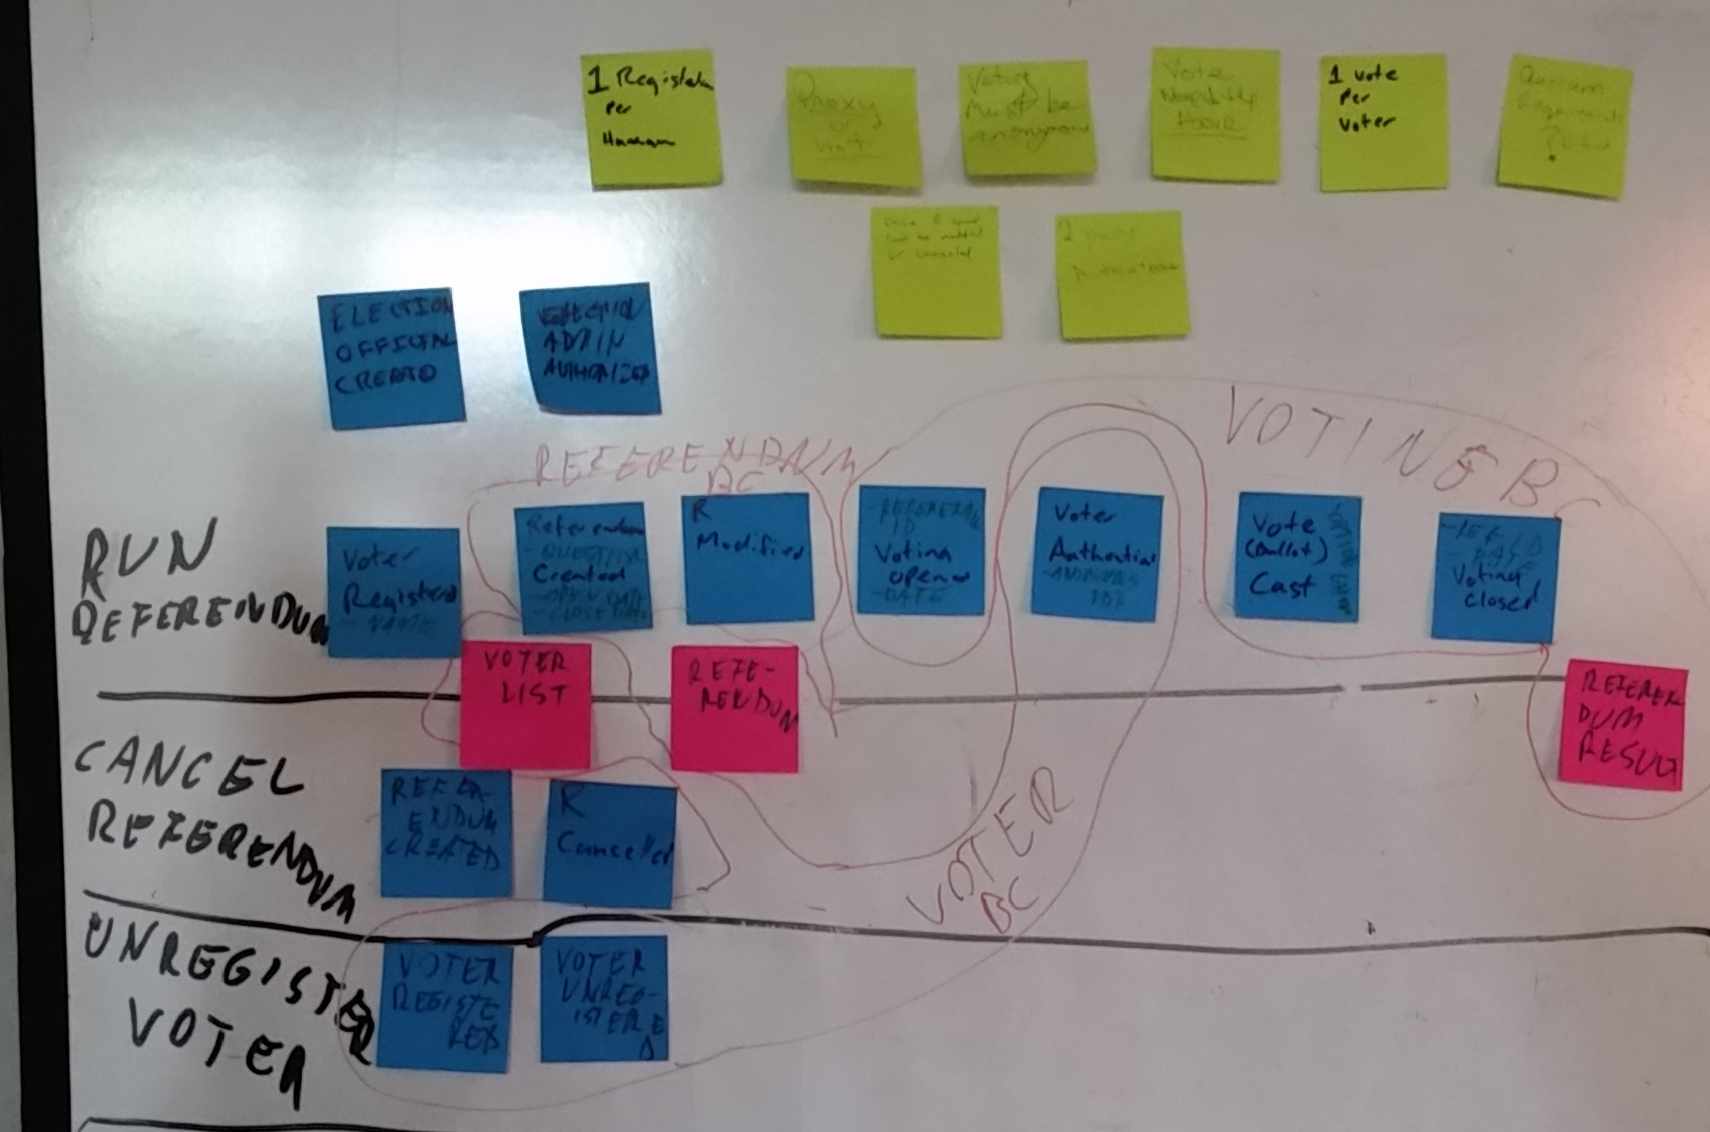 1 Registration
per
Human
Proxy
or
not
Voting
Must be
anonymous
Vote
None of the
Above
1 vote
per
voter
Quorum
Requirements
?
Once
cannot be modified
or cancelled
2 party
Authentication
ELECTION
OFFICIAL
CREATED
ELECTION
ADMIN
AUTHORIZED
REFERENDUM
BC
VOTING BC
RUN
REFERENDUM
Voter
Registered
- NAME
Referendum
- QUESTION
Created
- OPEN DATE
- CLOSE DATE
R
Modified
- REFERENDUM
ID
Voting
opened
- DATE
Voter
Authenticated
Vote
(Ballot)
Cast
- REF ID
Voting
closed
VOTER
LIST
REFE-
RENDUM
REFEREN
DUM
RESULT
CANCEL
REFERENDUM
REFER-
ENDUM
CREATED
R
Cancelled
VOTER
BC
UNREGISTER
VOTER
VOTER
REGISTE
RED
VOTER
UNREG-
ISTERE
D